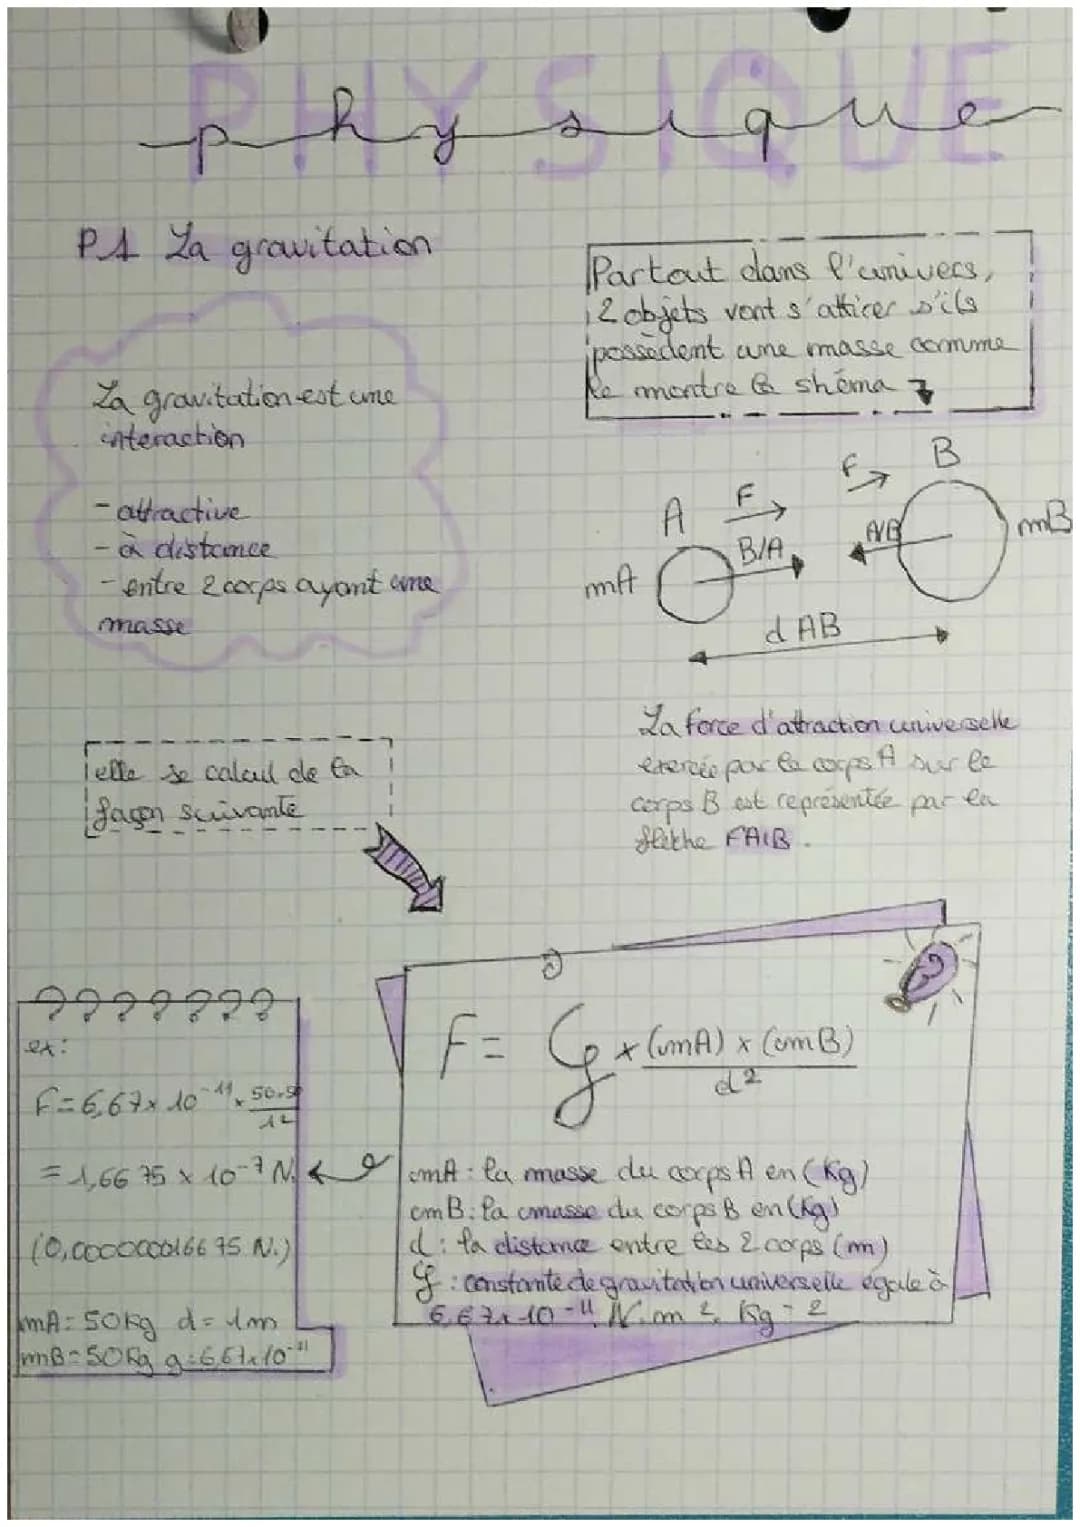 PHYSIQUE
physique
P1 La gravitation
Partout dans l'univers,
2 objets vont s'attirer s'ils
possèdent une masse comme
le montre le shéma
La gravitation est une
interaction
- attractive
- à distance
- entre 2 corps ayant une
masse
A
F
B/A
mA
F
B
A/B
mB
d AB
La force d'attraction universelle
exercée par le corps A sur le
corps B est représentée par la
flèche FA/B.
elle se calcul de la
façon suivante
F = G × (mA) × (mB)
d²
mA : la masse du corps A en (Kg)
mB : la masse du corps B en (Kg)
d : la distance entre les 2 corps (m)
G : constante de gravitation universelle égale à
6,67 × 10⁻¹¹ N. m², Kg - 2
ex :
F = 6,67 × 10⁻¹¹ × 50.50
1²
= 1,6675 × 10⁻⁷ N.
(0,00000016675 N.)
mA = 50 kg d = 1m
mB = 50 Kg g = 6,67×10⁻¹¹